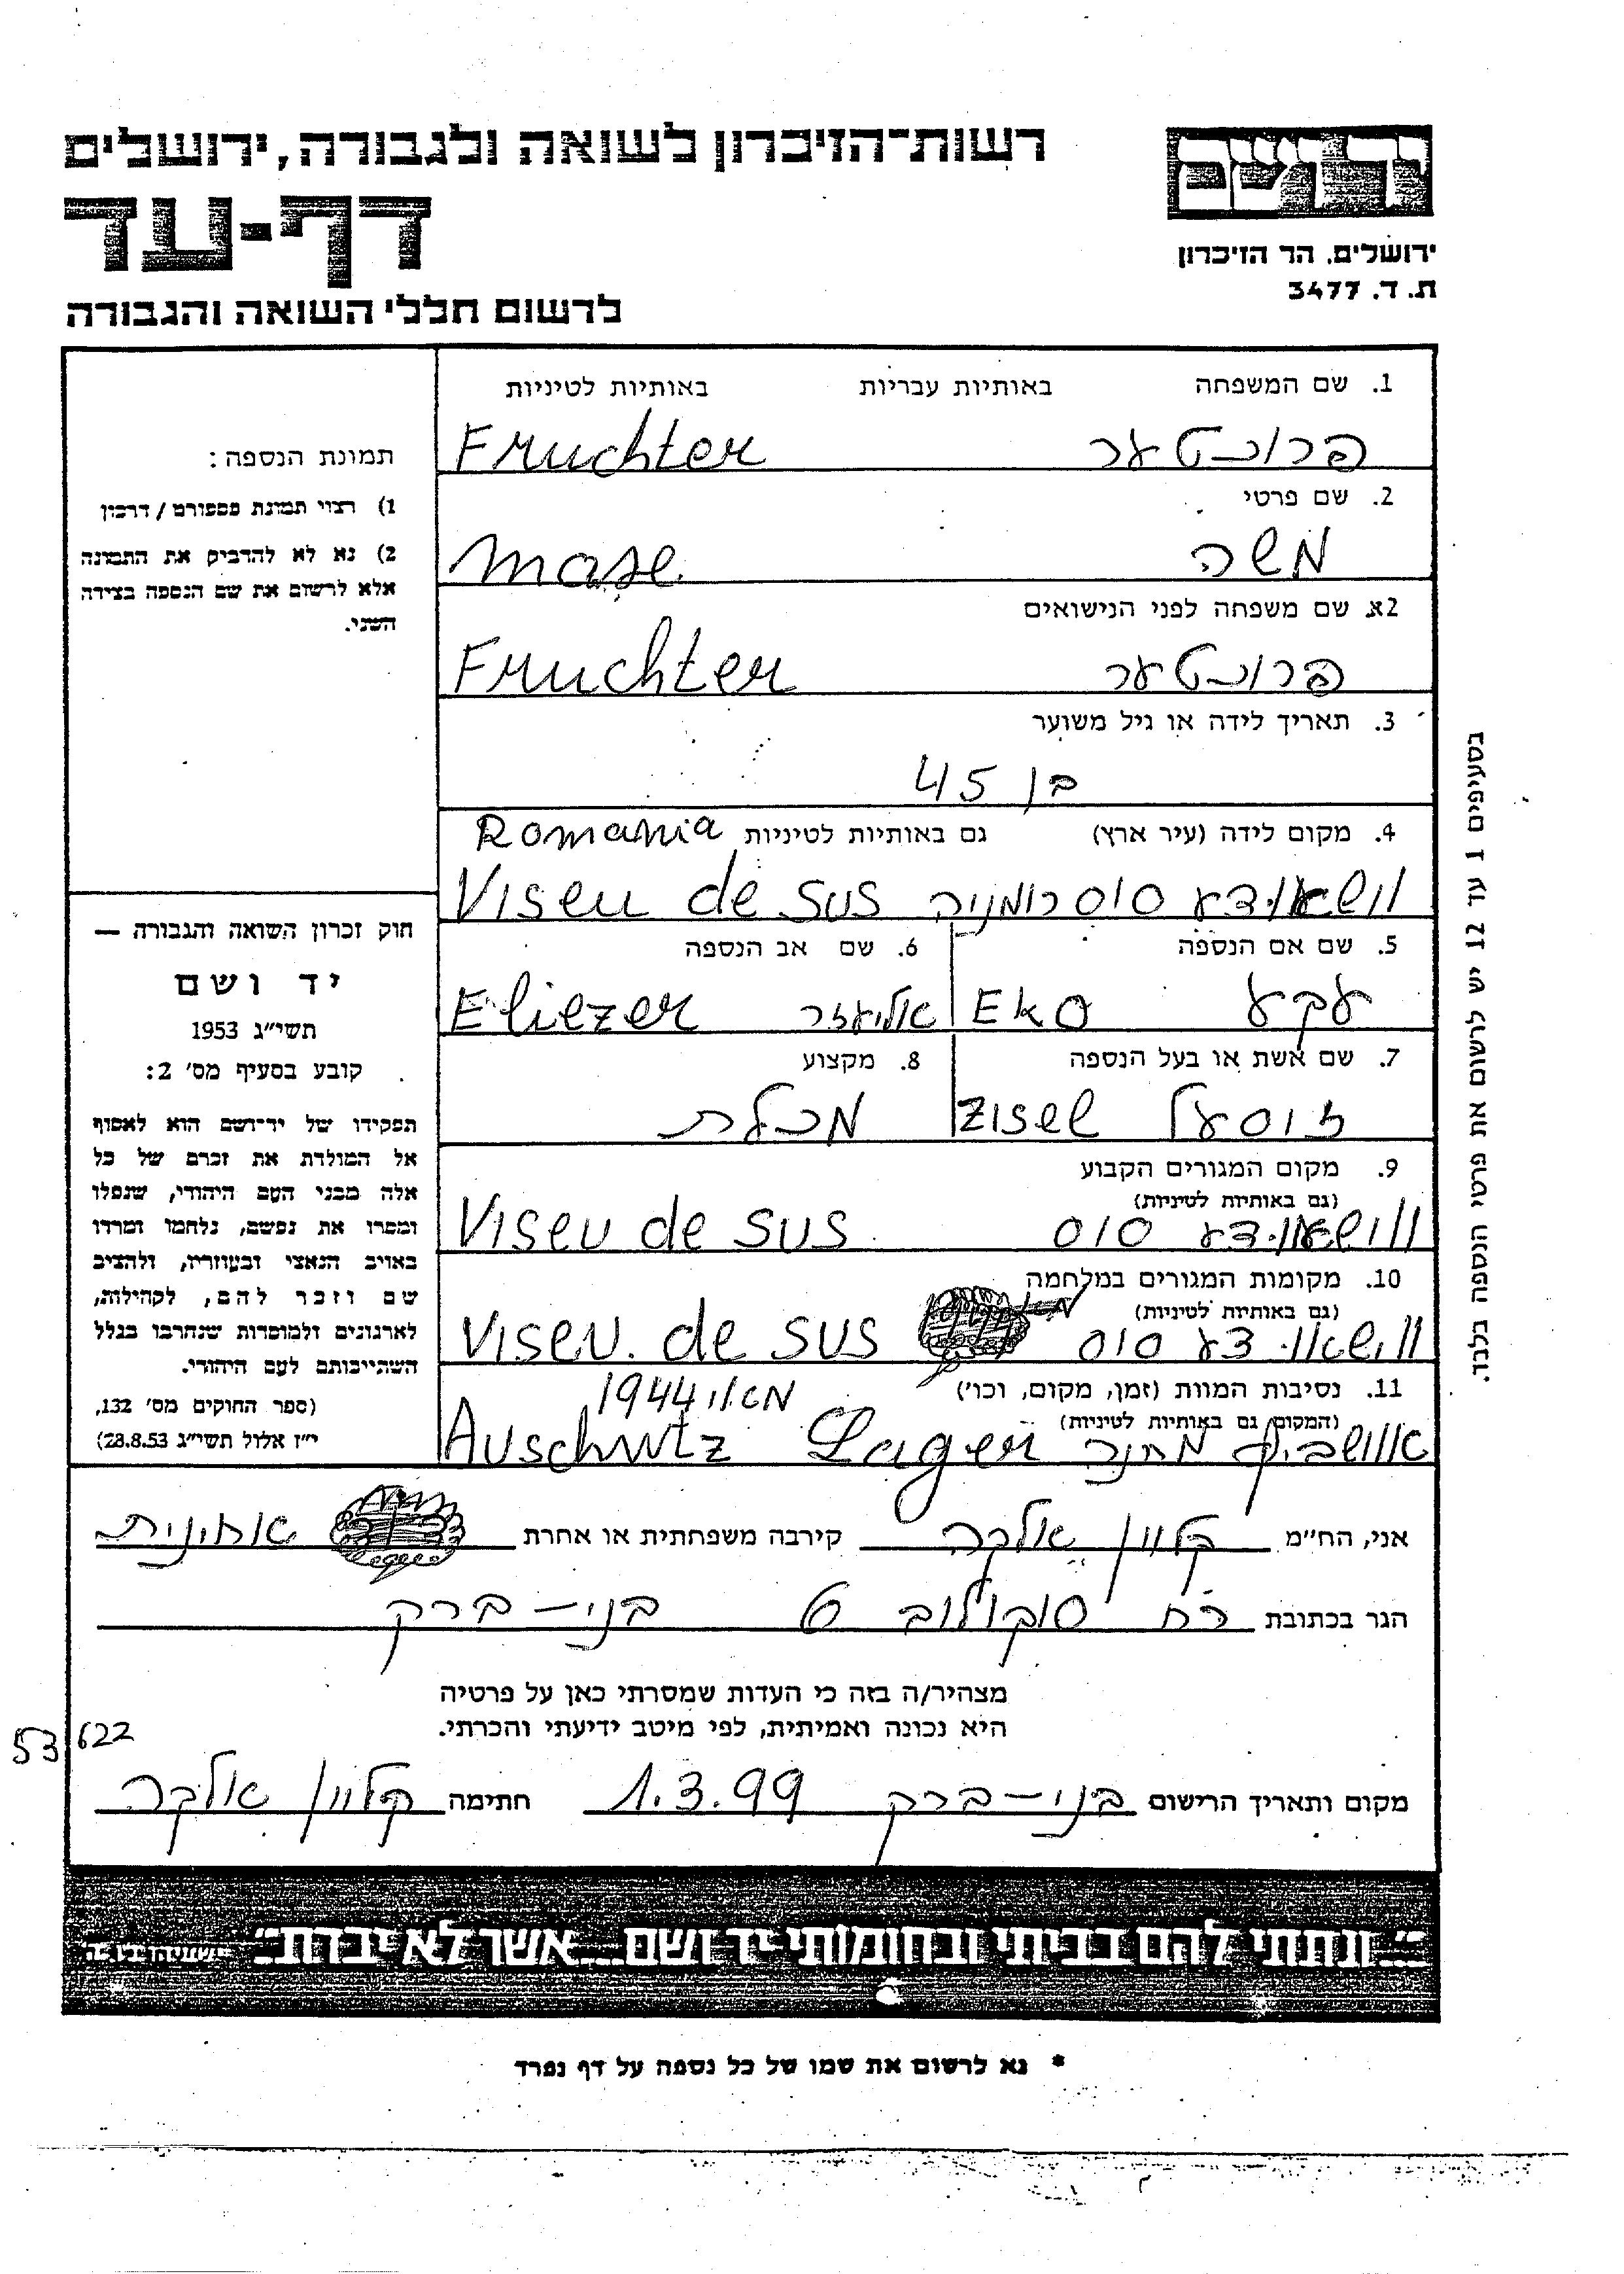 רשות-הזיכרון לשואה ולגבורה, ירושלים
דף-עד
לרשום חללי השואה והגבורה
יד ושם
ירושלים. הר הזיכרון
ת. ד. 3477
1. שם המשפחה באותיות עבריות באותיות לטיניות
פרוכטער Fruchter
2. שם פרטי
משה Mose
2א. שם משפחה לפני הנישואים
פרוכטער Fruchter
3. תאריך לידה או גיל משוער
בן 45
4. מקום לידה (עיר ארץ) גם באותיות לטיניות Romania
ווישאו דע סוס רומניה Viseu de sus
5. שם אם הנספה 6. שם אב הנספה
עקע Eko אליעזר Eliezer
7. שם אשת או בעל הנספה 8. מקצוע
זיסעל Zisel מכלת
9. מקום המגורים הקבוע
(גם באותיות לטיניות)
ווישאו דע סוס Viseu de sus
10. מקומות המגורים במלחמה
(גם באותיות לטיניות)
ווישאו דע סוס Viseu. de sus
11. נסיבות המוות (זמן, מקום, וכו') מאי 1944
(המקום גם באותיות לטיניות)
אוושביץ מחנה Lager Auschwitz
תמונת הנספה:
1) רצוי תמונת פספורט / דרכון
2) נא לא להדביק את התמונה
אלא לרשום את שם הנספה בצידה
השני.
חוק זכרון השואה והגבורה —
יד ושם
תשי"ג 1953
קובע בסעיף מס' 2:
תפקידו של יד-ושם הוא לאסוף
אל המולדת את זכרם של כל
אלה מבני העם היהודי, שנפלו
ומסרו את נפשם, נלחמו ומרדו
באויב הנאצי ובעוזריו, ולהציב
שם וזכר להם, לקהילות,
לארגונים ולמוסדות שנחרבו בגלל
השתייכותם לעם היהודי.
(ספר החוקים מס' 132,
י"ז אלול תשי"ג 28.8.53)
בסעיפים 1 עד 12 יש לרשום את פרטי הנספה בלבד.
אני, הח"מ קליין אלקה קירבה משפחתית או אחרת אחינית
הגר בכתובת רח סוקולוב 6 בני-ברק
מצהיר/ה בזה כי העדות שמסרתי כאן על פרטיה
היא נכונה ואמיתית, לפי מיטב ידיעתי והכרתי.
53622
מקום ותאריך הרישום בני-ברק 1.3.99 חתימה קליין אלקה
"...ונתתי להם בביתי ובחומותי יד ושם... אשר לא יכרת" ישעיהו נו, ה
* נא לרשום את שמו של כל נספה על דף נפרד